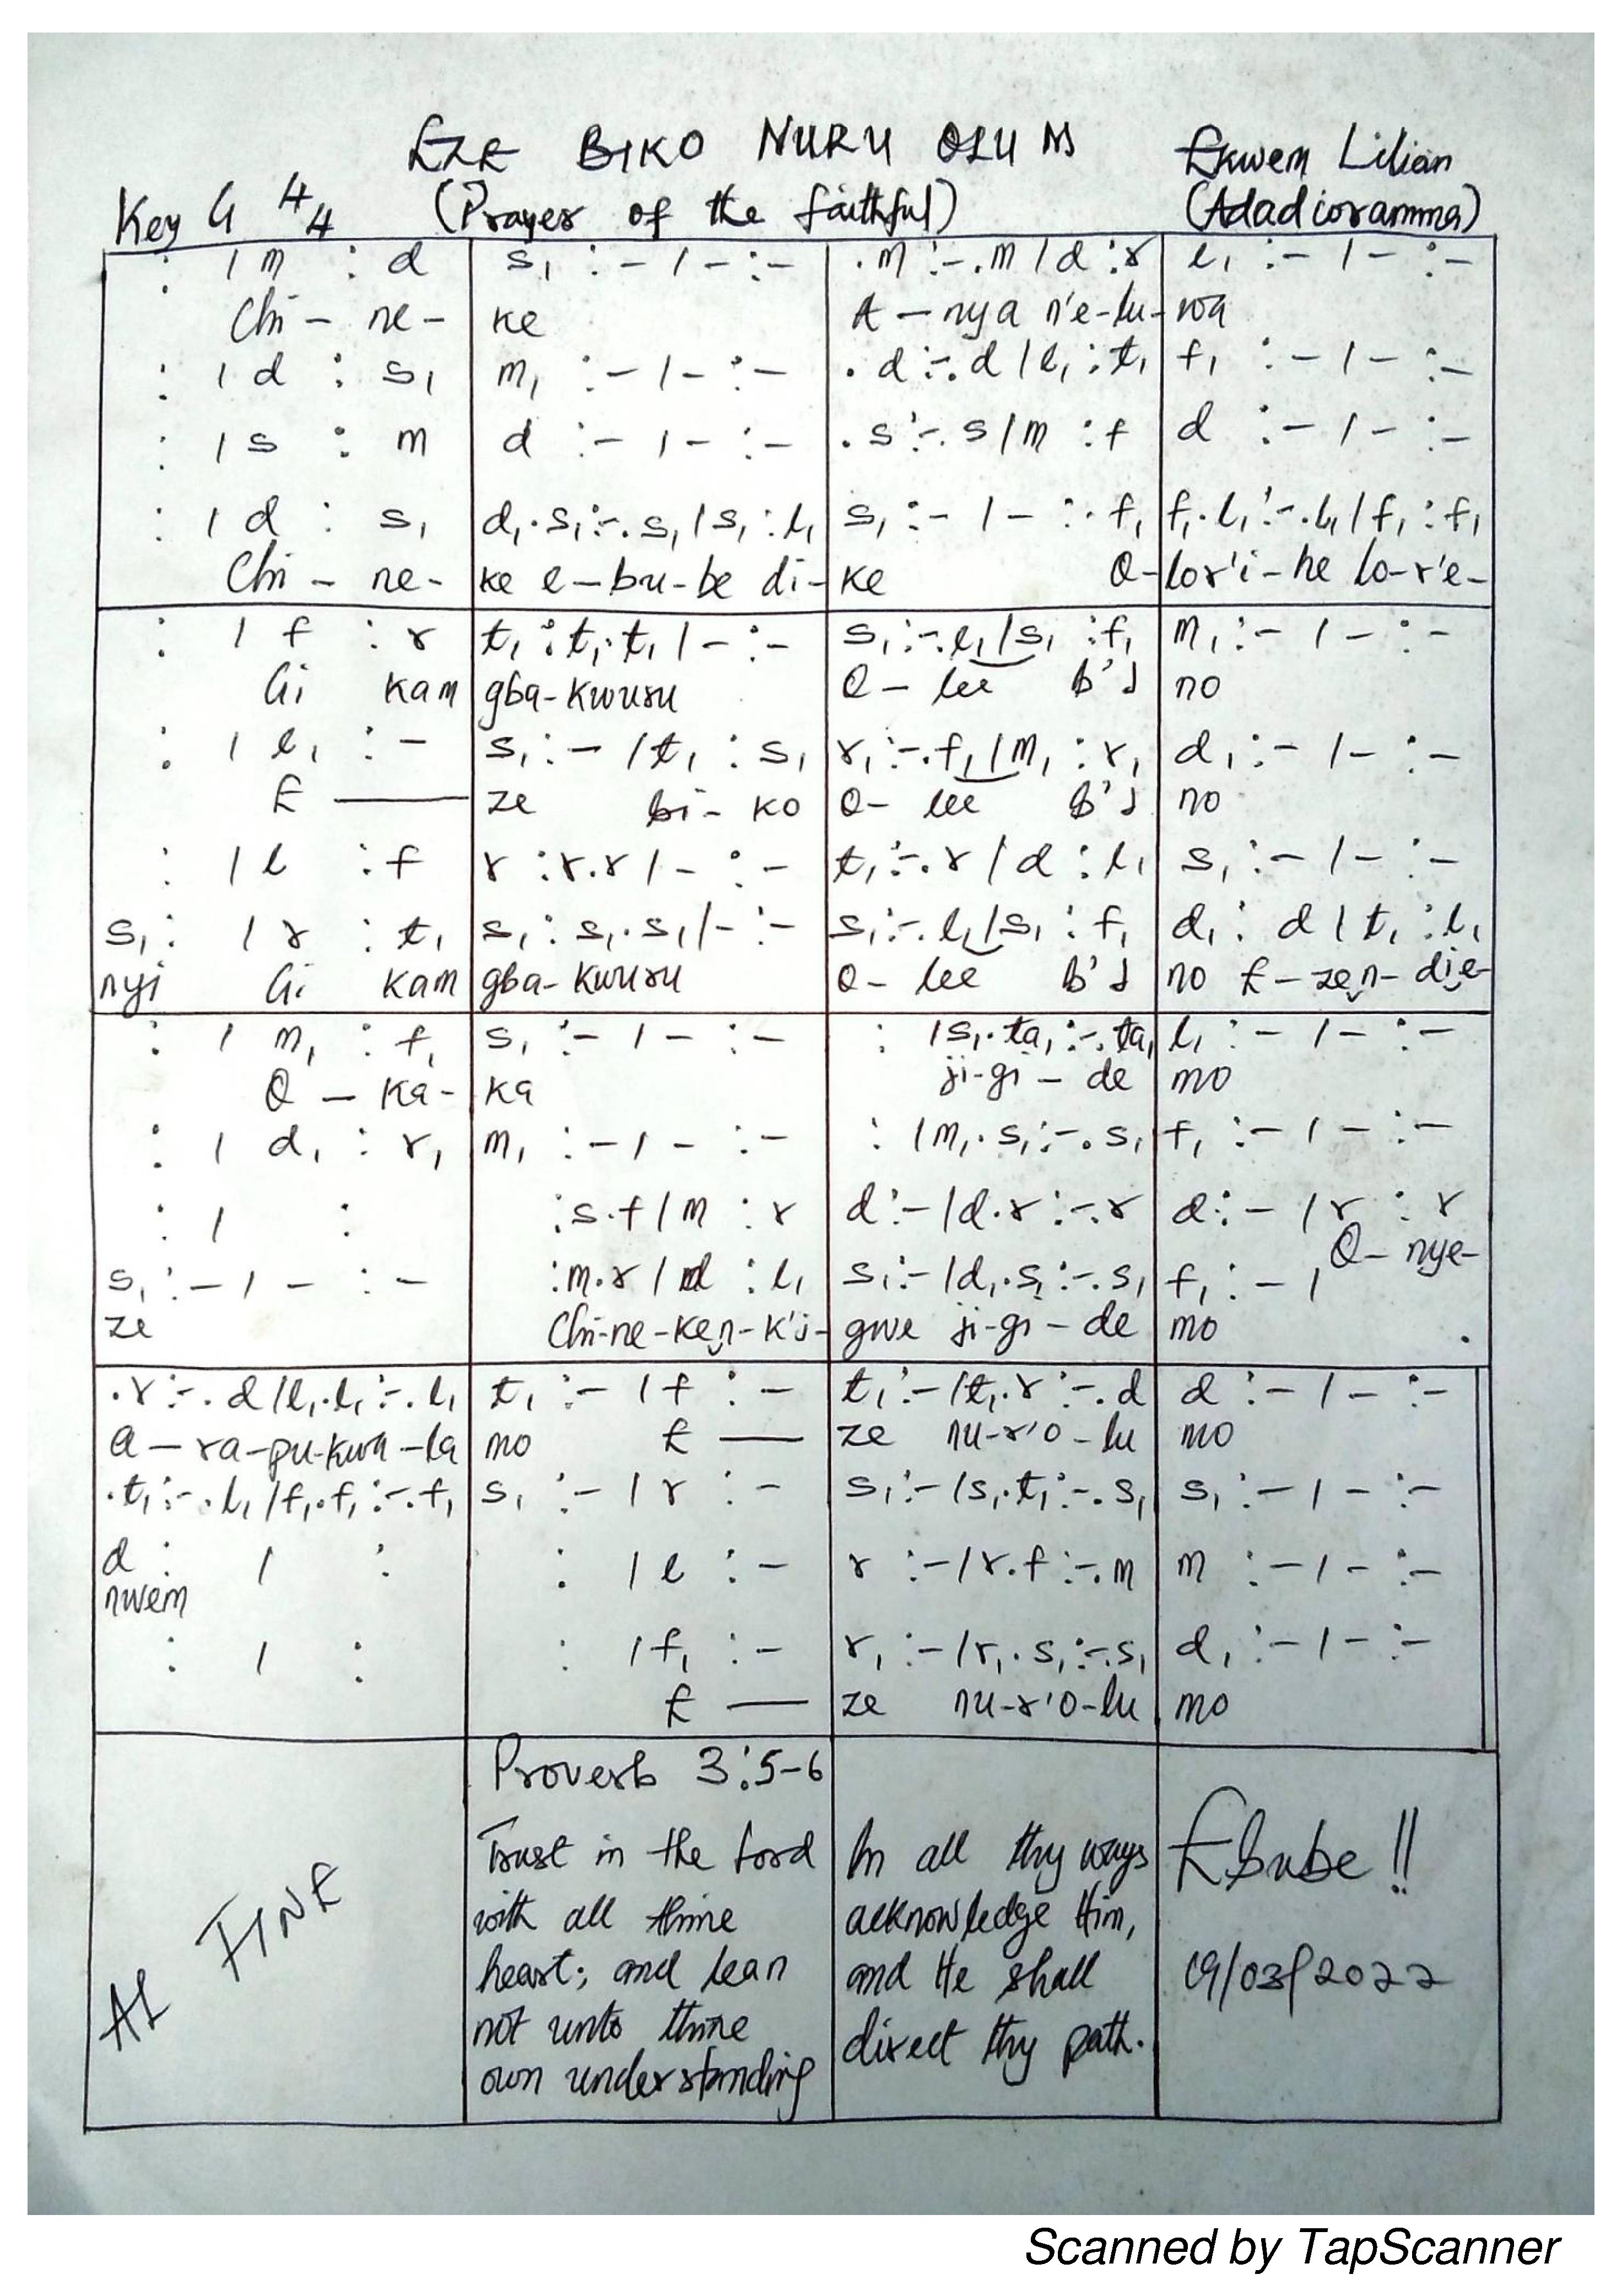 EZE BIKO NURU OLU M Ekwem Lilian
Key G 4/4 (Prayer of the faithful) (Adadioramma)
: / m : d | s₁ : - / - : - | . m : - . m / d : r | l₁ : - / - : -
Chi - ne - | ke | A - nya n'e - lu - | wa
: / d : s₁ | m₁ : - / - : - | . d : - . d / l₁ : t₁ | f₁ : - / - : -
: / s : m | d : - / - : - | . s : - . s / m : f | d : - / - : -
: / d : s₁ | d₁ . s₁ : - . s₁ / s₁ : l₁ | s₁ : - / - : . f₁ | f₁ . l₁ : - . l₁ / f₁ : f₁
Chi - ne - | ke e - bu - be di - | ke O - | lor'i - he lo - r'e -
: / f : r | t₁ : t₁ . t₁ / - : - | s₁ : - . l₁ / s₁ : f₁ | m₁ : - / - : -
Gi kam | gba - kwuru | O - lee b'ị | no
: / l₁ : - | s₁ : - / t₁ : s₁ | r₁ : - . f₁ / m₁ : r₁ | d₁ : - / - : -
E — | ze bi - ko | O - lee b'ị | no
: / l : f | r : r . r / - : - | t₁ : - . r / d : l₁ | s₁ : - / - : -
s₁ : / r : t₁ | s₁ : s₁ . s₁ / - : - | s₁ : - . l₁ / s₁ : f₁ | d₁ : d / t₁ : l₁
nyi Gi kam | gba - kwuru | O - lee b'ị | no E - zeṇ - die -
: / m₁ : f₁ | s₁ : - / - : - | : / s₁ . ta₁ : - . ta₁ | l₁ : - / - : -
O - ka - | ka | ji - gi - de | mo
: / d₁ : r₁ | m₁ : - / - : - | : / m₁ . s₁ : - . s₁ | f₁ : - / - : -
: / : | : s . f / m : r | d : - / d . r : - . r | d : - / r : r
O - nye -
s₁ : - / - : - | : m . r / d : l₁ | s₁ : - / d₁ . s₁ : - . s₁ | f₁ : - /
ze | Chi - ne - keṇ - k'i - | gwe ji - gi - de | mo .
. r : - . d / l₁ . l₁ : - . l₁ | t₁ : - / f : - | t₁ : - / t₁ . r : - . d | d : - / - : -
a - ra - pu - kwa - la | mo E — | ze nu - r'o - lu | mo
. t₁ : - . l₁ / f₁ . f₁ : - . f₁ | s₁ : - / r : - | s₁ : - / s₁ . t₁ : - . s₁ | s₁ : - / - : -
d : / : | : / l : - | r : - / r . f : - . m | m : - / - : -
nwem
: / : | : / f₁ : - | r₁ : - / r₁ . s₁ : - . s₁ | d₁ : - / - : -
E — | ze nu - r'o - lu | mo
AL FINE
Proverb 3:5-6
Trust in the Lord
with all thine
heart; and lean
not unto thine
own understanding
In all thy ways
acknowledge Him,
and He shall
direct thy path.
Ebube!!
19/03/2022
Scanned by TapScanner